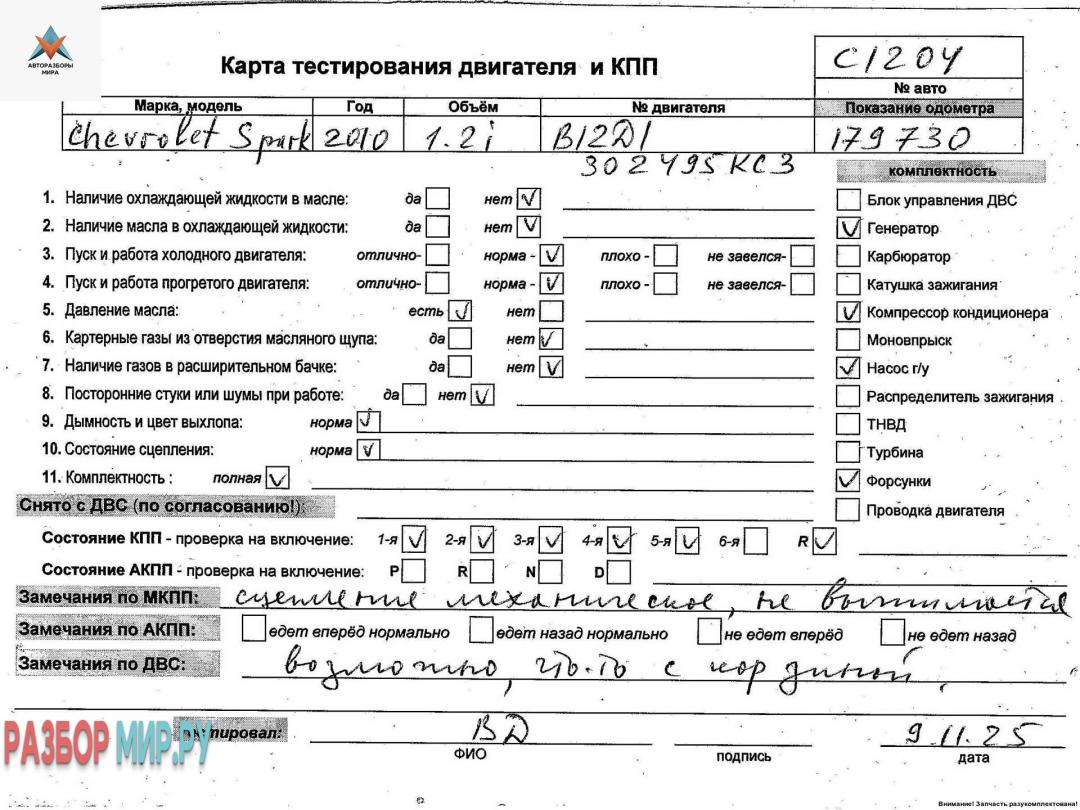 АВТОРАЗБОРЫ
МИРА
Карта тестирования двигателя и КПП
С1204
№ авто
Марка, модель Год Объём № двигателя Показание одометра
Chevrolet Spark 2010 1.2i B12D1 179730
302495KC3
комплектность
1. Наличие охлаждающей жидкости в масле: да нет
Блок управления ДВС
2. Наличие масла в охлаждающей жидкости: да нет
Генератор
3. Пуск и работа холодного двигателя: отлично- норма - плохо - не завелся-
Карбюратор
4. Пуск и работа прогретого двигателя: отлично- норма - плохо - не завелся-
Катушка зажигания
5. Давление масла: есть нет
Компрессор кондиционера
6. Картерные газы из отверстия масляного щупа: да нет
Моновпрыск
7. Наличие газов в расширительном бачке: да нет
Насос г/у
8. Посторонние стуки или шумы при работе: да нет
Распределитель зажигания
9. Дымность и цвет выхлопа: норма
ТНВД
10. Состояние сцепления: норма
Турбина
11. Комплектность : полная
Форсунки
Снято с ДВС (по согласованию!):
Проводка двигателя
Состояние КПП - проверка на включение: 1-я 2-я 3-я 4-я 5-я 6-я R
Состояние АКПП - проверка на включение: P R N D
Замечания по МКПП: сцепление механическое, не выжимается
Замечания по АКПП: едет вперёд нормально едет назад нормально не едет вперёд не едет назад
Замечания по ДВС: возможно, что-то с корзиной.
тестировал: ВД 9.11.25
ФИО подпись дата
РАЗБОР МИР.РУ
Внимание! Запчасть разукомплектована!